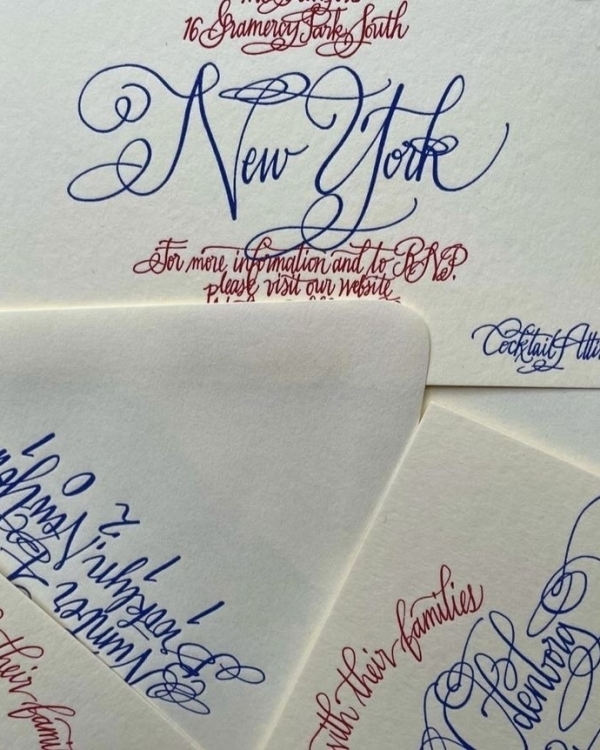 16 Gramercy Park South
New York
For more information and to RSVP.
please visit our website
Cocktail
Number
Brooklyn, New
1 1 2 0 1
with their families
denborg
their